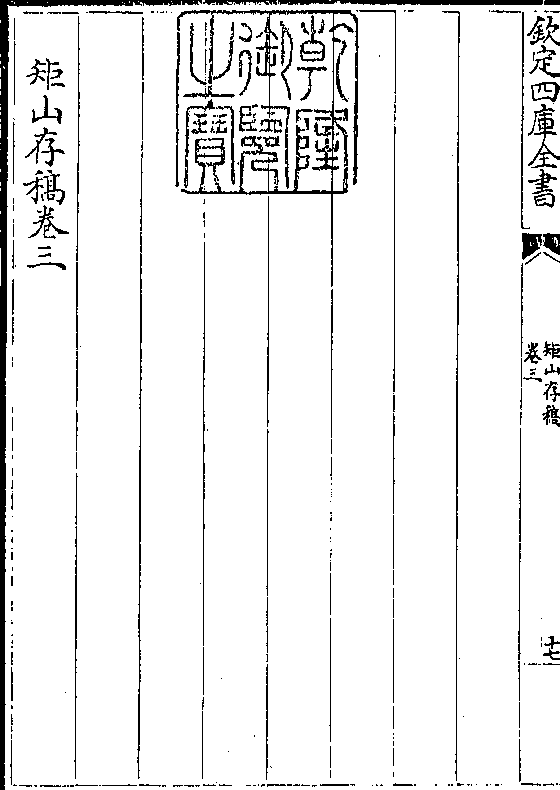 欽定四庫全書
矩山存稿
卷三
十七
乾隆
御覽
之寶
矩山存稿卷三